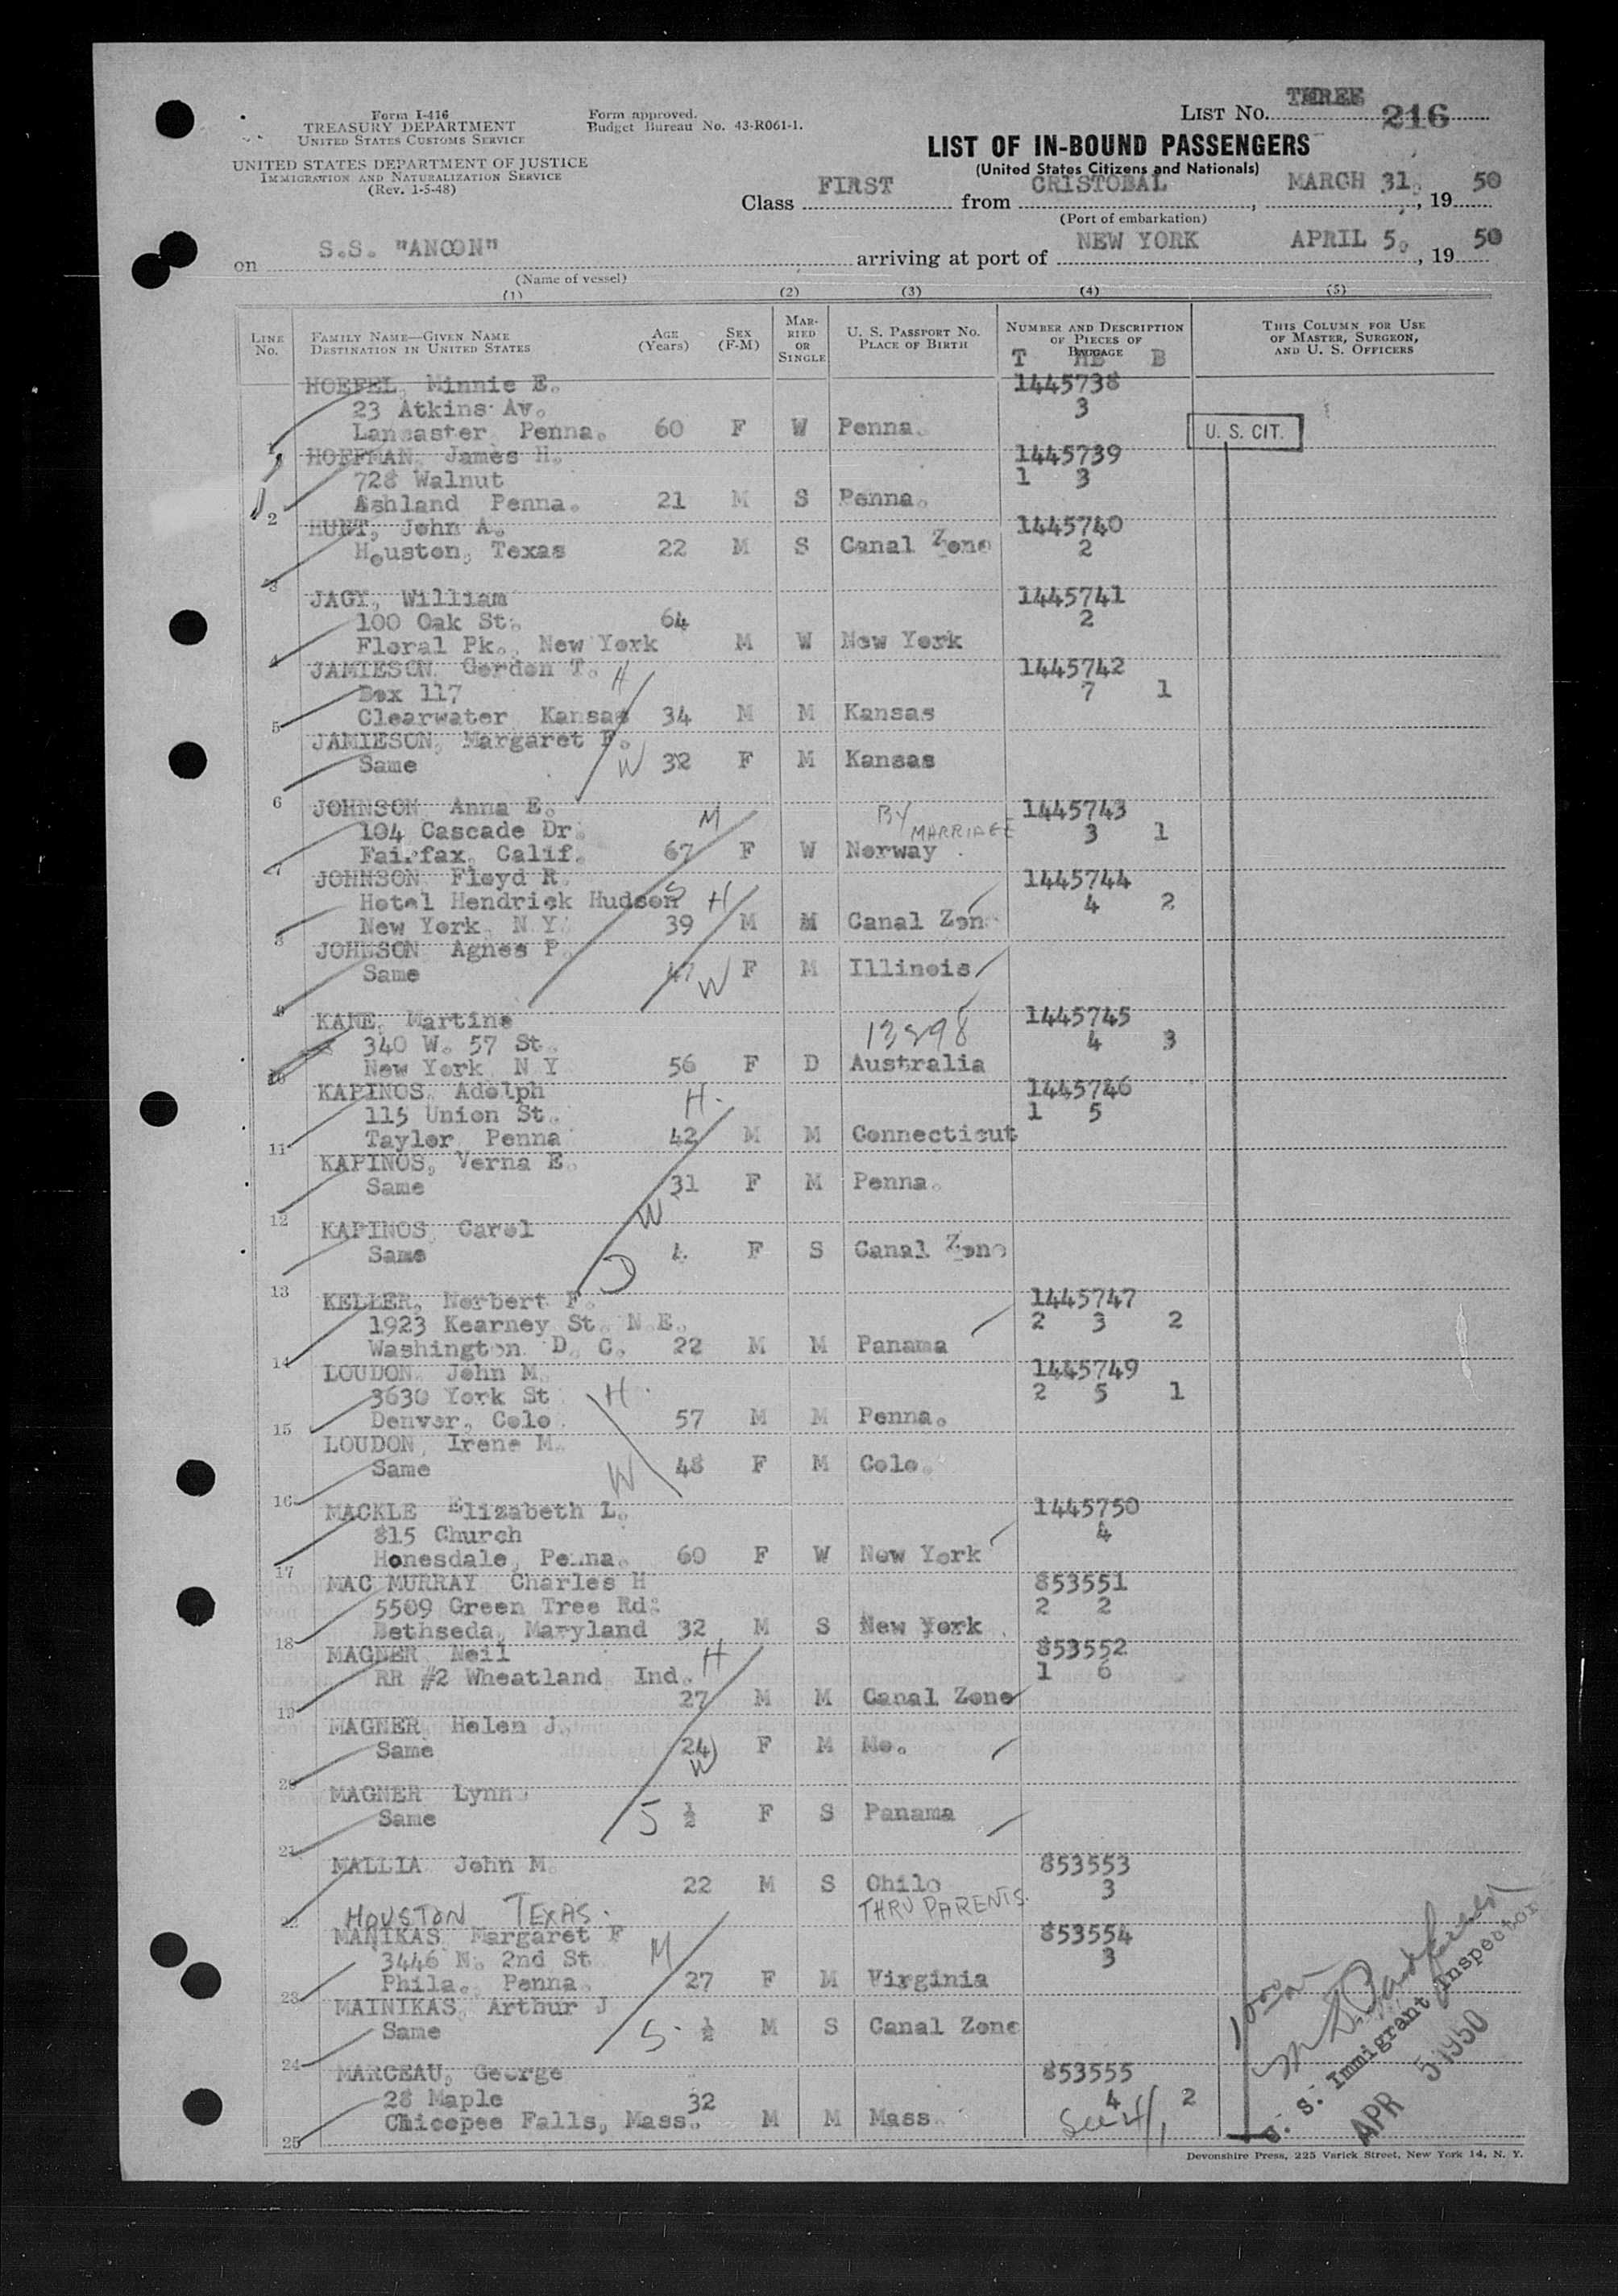 Form I-416
TREASURY DEPARTMENT
UNITED STATES CUSTOMS SERVICE
UNITED STATES DEPARTMENT OF JUSTICE
IMMIGRATION AND NATURALIZATION SERVICE
(Rev. 1-5-48)
Form approved.
Budget Bureau No. 43-R061-1.
LIST NO. THREE 216
LIST OF IN-BOUND PASSENGERS
(United States Citizens and Nationals)
Class FIRST from CRISTOBAL, MARCH 31, 19 50
(Port of embarkation)
on S.S. "ANCON" arriving at port of NEW YORK APRIL 5, 19 50
(Name of vessel)
(1) (2) (3) (4) (5)
LINE NO. FAMILY NAME—GIVEN NAME DESTINATION IN UNITED STATES AGE (Years) SEX (F-M) MARRIED OR SINGLE U. S. PASSPORT NO. PLACE OF BIRTH NUMBER AND DESCRIPTION OF PIECES OF BAGGAGE THIS COLUMN FOR USE OF MASTER, SURGEON, AND U. S. OFFICERS
T HB B
HOEFEL, Minnie E. 1445738
23 Atkins Av. 3
1 Lancaster, Penna. 60 F W Penna. U. S. CIT.
HOFFMAN, James H. 1445739
728 Walnut 1 3
2 Ashland Penna. 21 M S Penna.
HUET, John A. 1445740
3 Houston, Texas 22 M S Canal Zone 2
JAGY, William 1445741
100 Oak St. 64 2
4 Floral Pk., New York M W New York
JAMIESON, Gordon T. H 1445742
Box 117 7 1
5 Clearwater, Kansas 34 M M Kansas
JAMIESON, Margaret F.
6 Same W 32 F M Kansas
JOHNSON, Anna E. M BY MARRIAGE 1445743
104 Cascade Dr. 3 1
7 Fairfax, Calif. 67 F W Norway
JOHNSON, Floyd R. 1445744
Hotel Hendrick Hudson S H 4 2
8 New York, N Y. 39 M M Canal Zone
JOHNSON, Agnes P.
9 Same 47 W F M Illinois
KANE, Martine 1445745
340 W. 57 St. 13898 4 3
10 New York, N Y 56 F D Australia
KAPINOS, Adolph H. 1445746
115 Union St. 1 5
11 Taylor, Penna 42 M M Connecticut
KAPINOS, Verna E.
12 Same 31 W F M Penna.
KAPINOS, Carol
13 Same D 4 F S Canal Zone
KELLER, Norbert F. 1445747
1923 Kearney St. N.E. 2 3 2
14 Washington D. C. 22 M M Panama
LOUDON, John M. 1445749
3630 York St H. 2 5 1
15 Denver, Colo. 57 M M Penna.
LOUDON, Irene M.
16 Same W 48 F M Colo.
MACKLE Elizabeth L. 1445750
815 Church 4
17 Honesdale, Penna. 60 F W New York
MAC MURRAY Charles H 853551
5509 Green Tree Rd. 2 2
18 Bethseda, Maryland 32 M S New York
MAGNER Neil H 853552
RR #2 Wheatland Ind. 1 6
19 27 M M Canal Zone
MAGNER Helen J.
20 Same 24 W F M Mo.
MAGNER Lynn
21 Same S ½ F S Panama
MALLIA John M. 853553
22 M S Chile 3
22 HOUSTON TEXAS. THRU PARENTS.
MANIKAS Margaret F 853554
3446 N. 2nd St. M 3
23 Phila., Penna. 27 F M Virginia
MAINIKAS, Arthur J
24 Same S. ½ M S Canal Zone
MARCEAU, George 853555
28 Maple 32 4 2
25 Chicopee Falls, Mass. M M Mass.
U. S. Immigrant Inspector
APR 5 1950
Devonshire Press, 225 Varick Street, New York 14, N. Y.